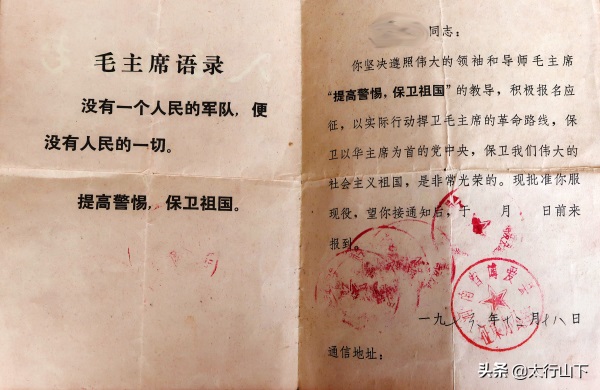 毛主席语录
没有一个人民的军队，便
没有人民的一切。
提高警惕，保卫祖国。
同志：
你坚决遵照伟大的领袖和导师毛主席
“提高警惕，保卫祖国”的教导，积极报名应
征，以实际行动捍卫毛主席的革命路线，保
卫以华主席为首的党中央，保卫我们伟大的
社会主义祖国，是非常光荣的。现批准你服
现役，望你接通知后，于 月 日前来
报到。
一九 年十二月十八日
通信地址：
头条 @太行山下